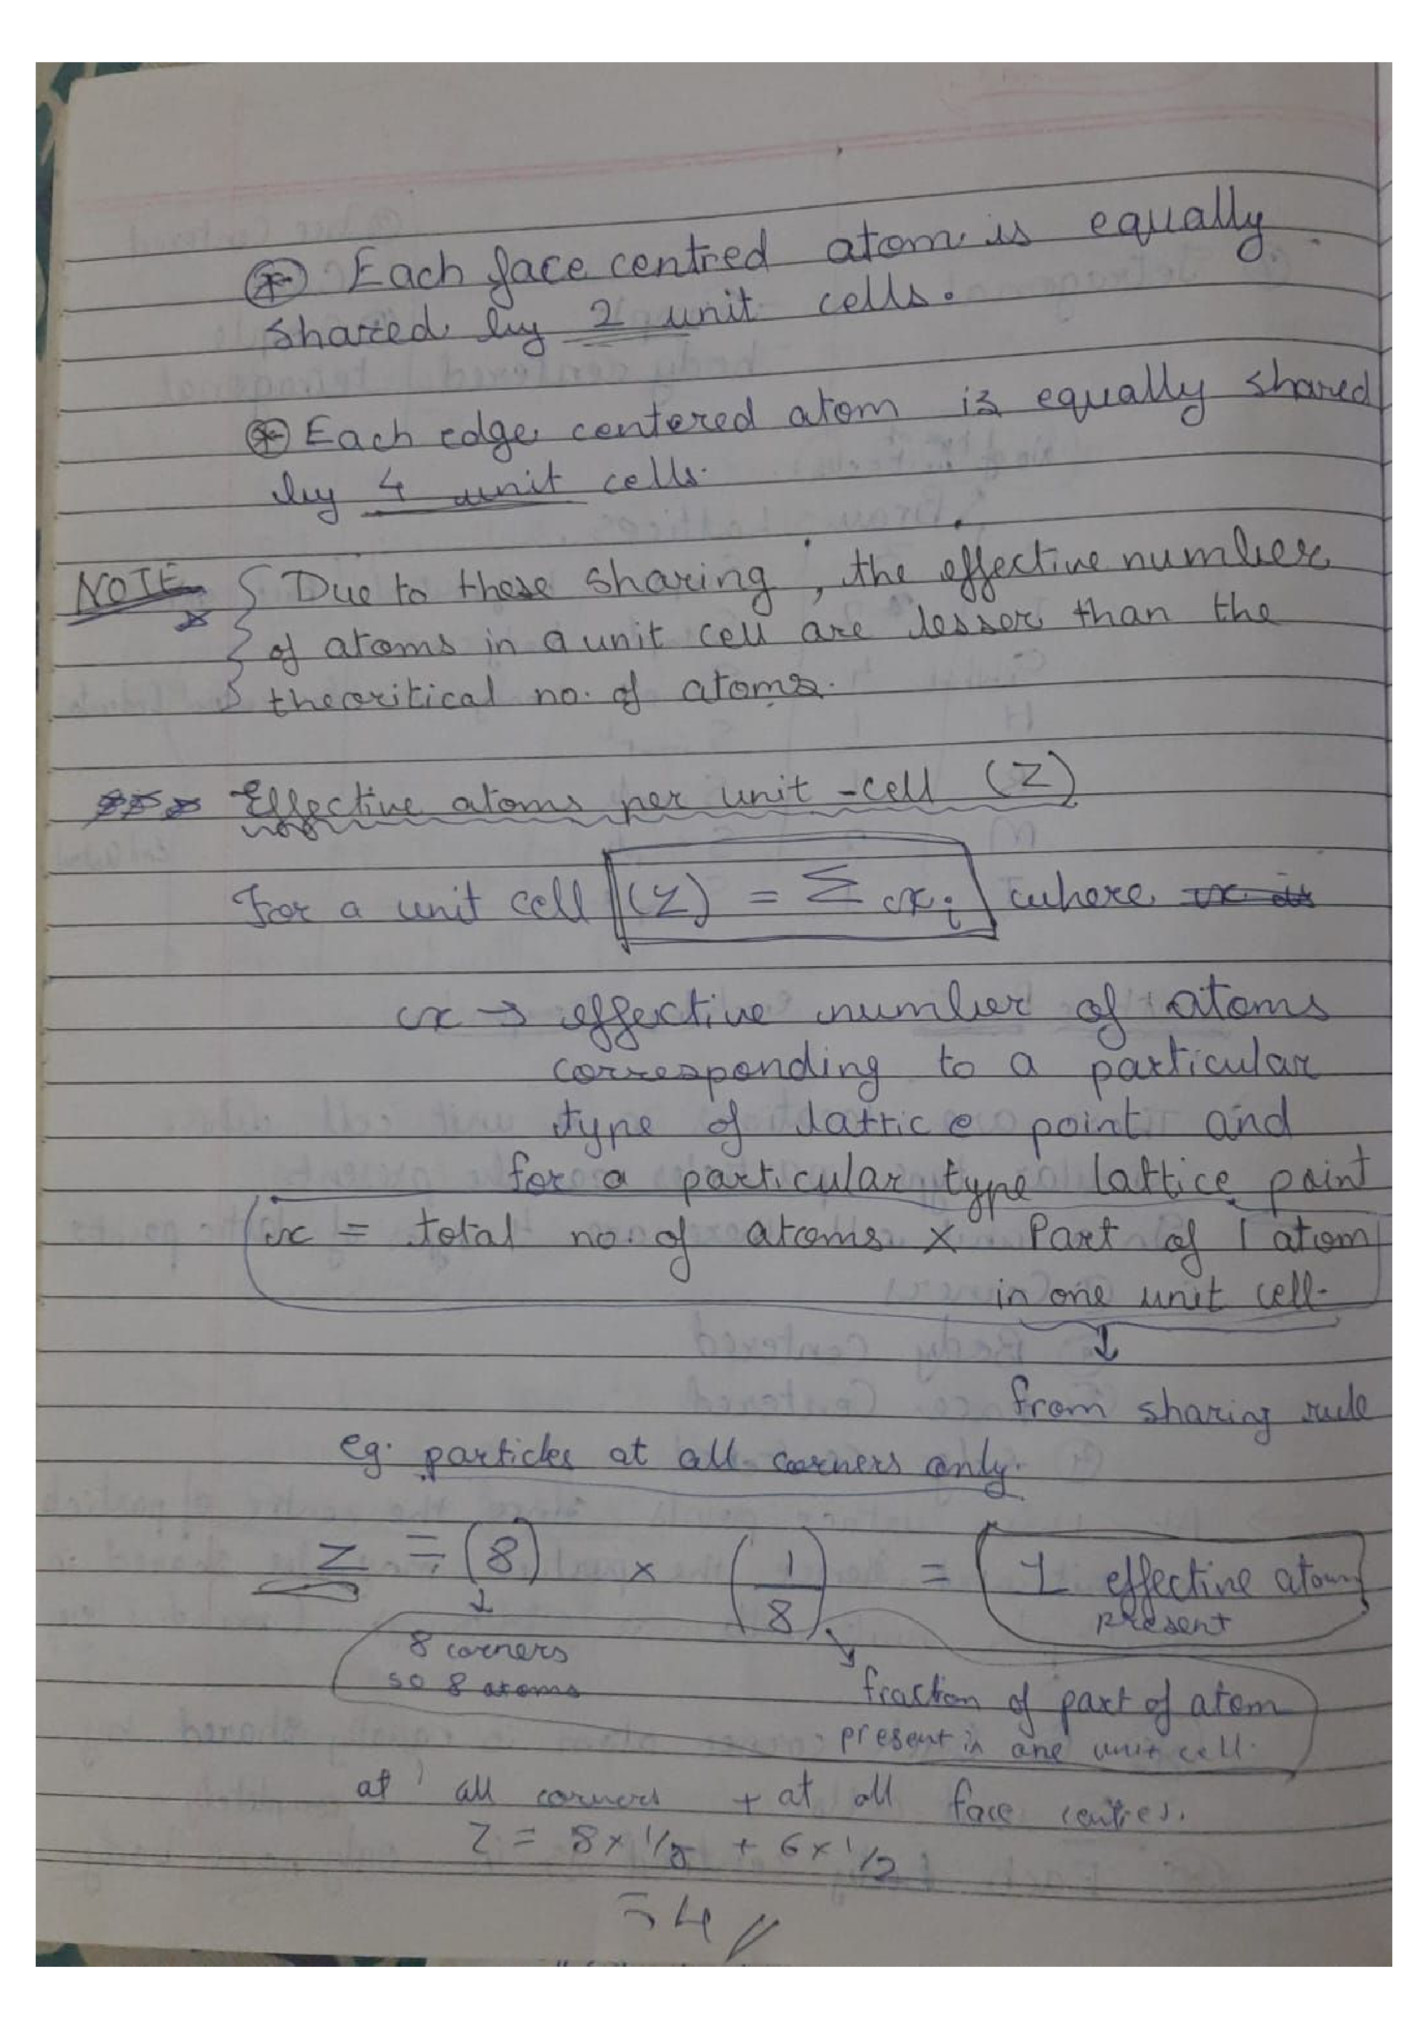 ⊛ Each face centred atom is equally
shared by 2 unit cells.
⊛ Each edge centered atom is equally shared
by 4 unit cells.
NOTE { Due to these sharing, the effective number
of atoms in a unit cell are lesser than the
theoritical no. of atoms.
Effective atoms per unit-cell (Z)
For a unit cell (Z) = Σ xi where
x → effective number of atoms
corresponding to a particular
type of lattice point and
for a particular type lattice point
x = total no. of atoms x Part of 1 atom
in one unit cell.
↓
from sharing rule
eg. particles at all corners only.
Z = (8) x (1/8) = 1 effective atom
present
8 corners
so 8 atoms
fraction of part of atom
present in one unit cell.
at all corners + at all face centres.
Z = 8 x 1/8 + 6 x 1/2
= 4 //